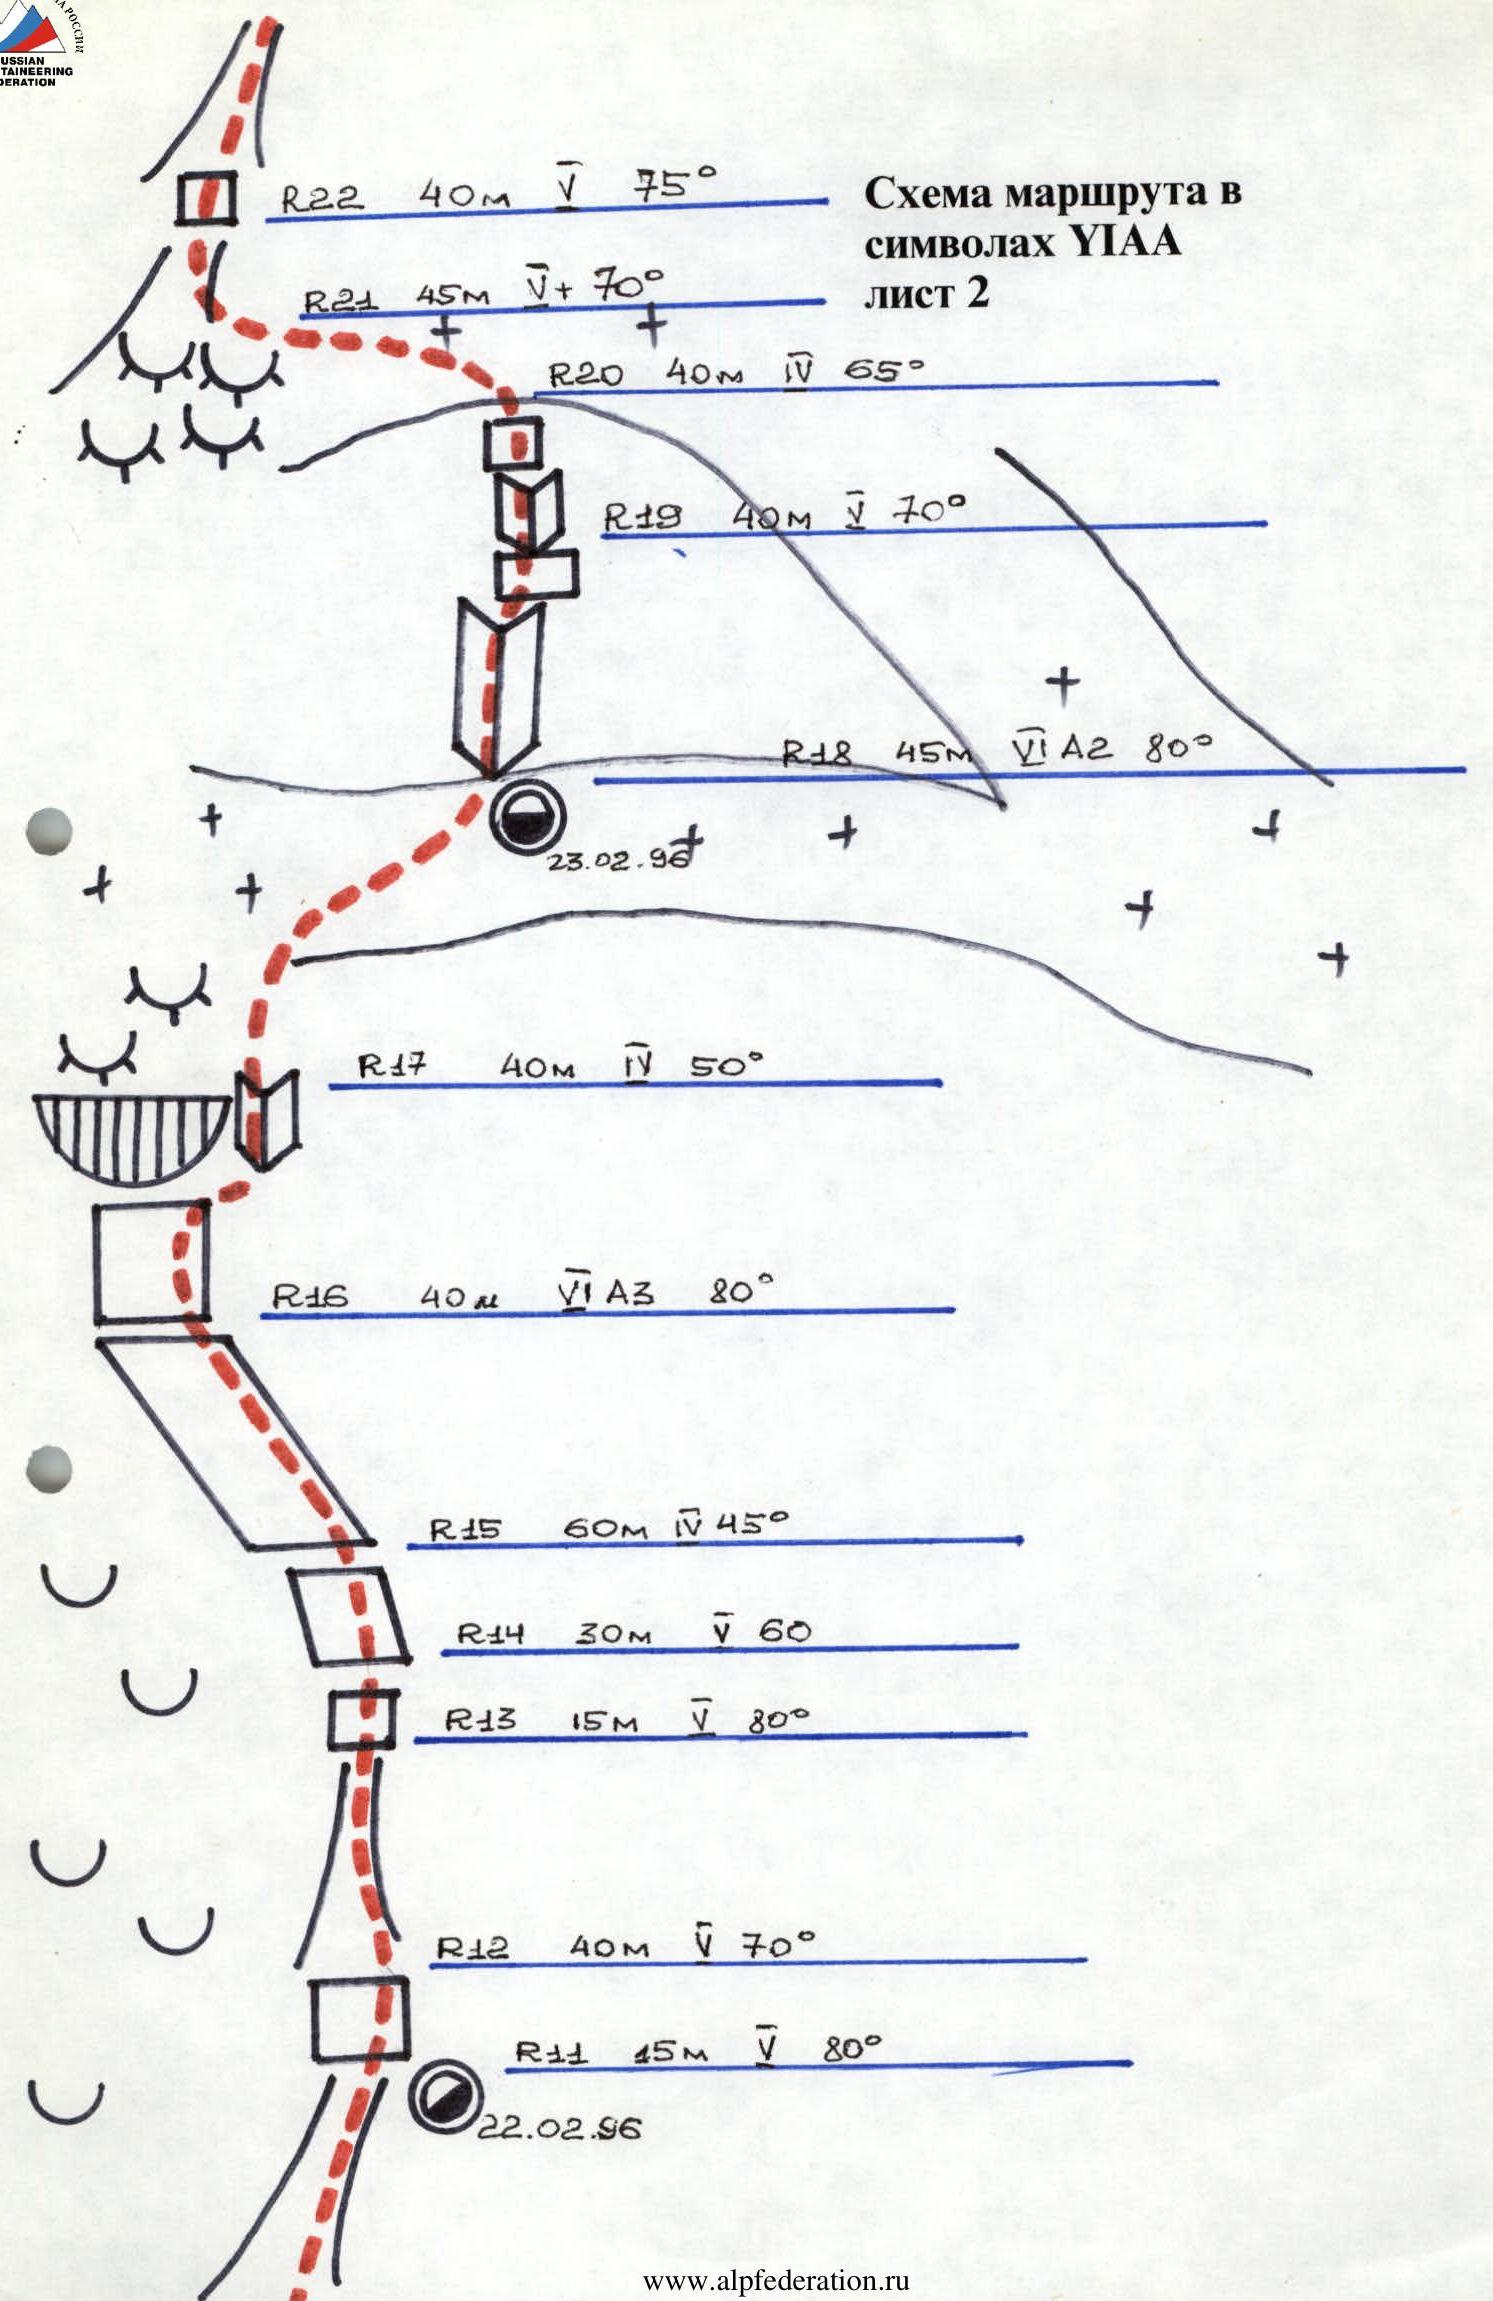 НА РОССИИ
USSIAN
TAINEERING
DERATION
R22 40м V 75°
Схема маршрута в
символах YIAA
лист 2
R21 45м V+ 70°
R20 40м IV 65°
R19 40м V 70°
R18 45м VI A2 80°
23.02.96
R17 40м IV 50°
R16 40м VI A3 80°
R15 60м IV 45°
R14 30м V 60
R13 15м V 80°
R12 40м V 70°
R11 15м V 80°
22.02.96
www.alpfederation.ru